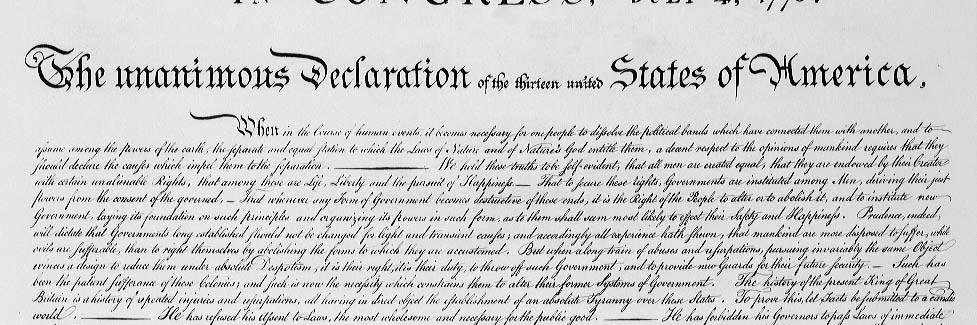 IN CONGRESS, JULY 4, 1776.
The unanimous Declaration of the thirteen united States of America,
When in the Course of human events, it becomes necessary for one people to dissolve the political bands which have connected them with another, and to
assume among the powers of the earth, the separate and equal station to which the Laws of Nature and of Nature's God entitle them, a decent respect to the opinions of mankind requires that they
should declare the causes which impel them to the separation. ——— We hold these truths to be self-evident, that all men are created equal, that they are endowed by their Creator
with certain unalienable Rights, that among these are Life, Liberty and the pursuit of Happiness.— That to secure these rights, Governments are instituted among Men, deriving their just
powers from the consent of the governed, — That whenever any Form of Government becomes destructive of these ends, it is the Right of the People to alter or to abolish it, and to institute new
Government, laying its foundation on such principles and organizing its powers in such form, as to them shall seem most likely to effect their Safety and Happiness. Prudence, indeed,
will dictate that Governments long established should not be changed for light and transient causes; and accordingly all experience hath shewn, that mankind are more disposed to suffer, while
evils are sufferable, than to right themselves by abolishing the forms to which they are accustomed. But when a long train of abuses and usurpations, pursuing invariably the same Object
evinces a design to reduce them under absolute Despotism, it is their right, it is their duty, to throw off such Government, and to provide new Guards for their future security. — Such has
been the patient sufferance of these Colonies; and such is now the necessity which constrains them to alter their former Systems of Government. The history of the present King of Great
Britain is a history of repeated injuries and usurpations, all having in direct object the establishment of an absolute Tyranny over these States. To prove this, let Facts be submitted to a candid
world. ——— He has refused his Assent to Laws, the most wholesome and necessary for the public good. ——— He has forbidden his Governors to pass Laws of immediate